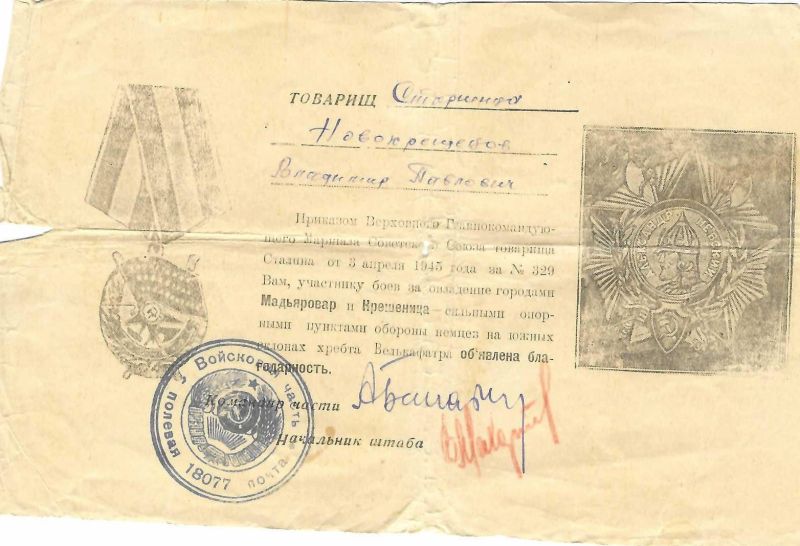 ТОВАРИЩ Старшина
Новокрещенов
Владимир Павлович
Приказом Верховного Главнокомандую-
щего Маршала Советского Союза товарища
Сталина от 3 апреля 1945 года за № 329
Вам, участнику боев за овладение городами
Мадьяровар и Крешеница — сильными опор-
ными пунктами обороны немцев на южных
склонах хребта Велькафатра об'явлена бла-
годарность.
Командир части
Начальник штаба
Войсковая часть
полевая почта
18077
АЛЕКСАНДР НЕВСКИЙ